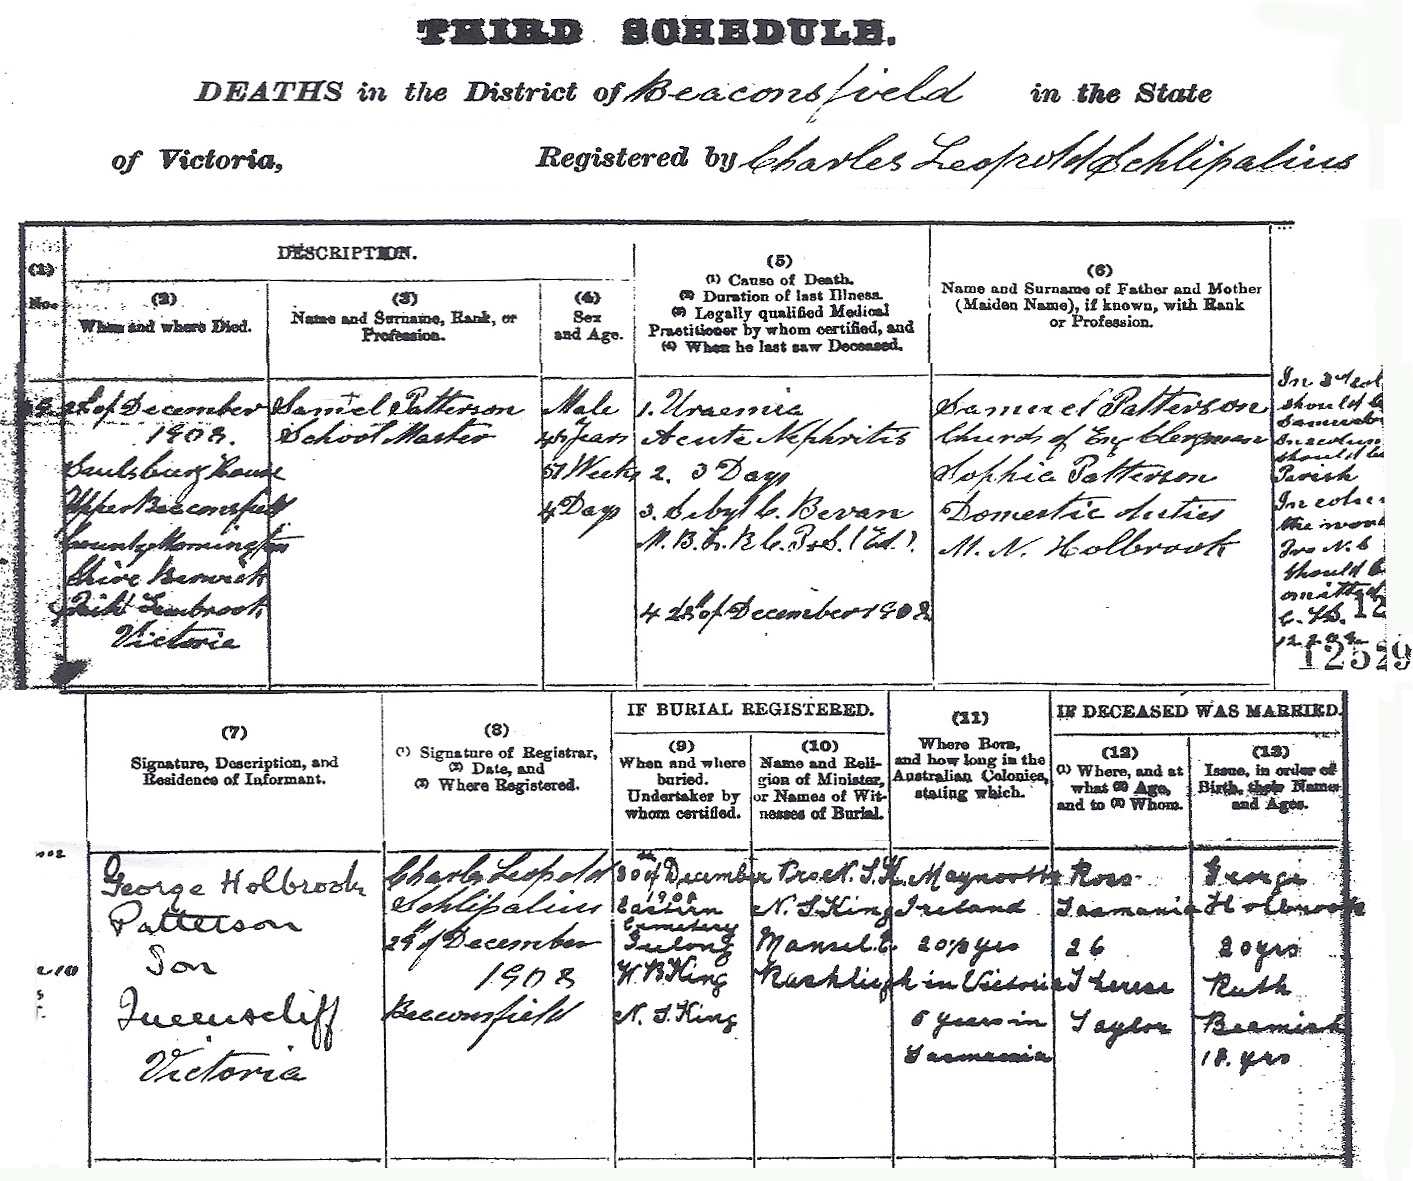 THIRD SCHEDULE.
DEATHS in the District of Beaconsfield in the State
of Victoria, Registered by Charles Leopold Schlipalius
(1)
No.
DESCRIPTION.
(2)
When and where Died.
(3)
Name and Surname, Rank, or
Profession.
(4)
Sex
and Age.
(5)
(1) Cause of Death.
(2) Duration of last Illness.
(3) Legally qualified Medical
Practitioner by whom certified, and
(4) When he last saw Deceased.
(6)
Name and Surname of Father and Mother
(Maiden Name), if known, with Rank
or Profession.
of December
1908.
House
Upper Beaconsfield
County Mornington
Shire Berwick
Victoria
Samuel Patterson
School Master
Male
Years
Weeks
4 Days
1. Uraemia
Acute Nephritis
2. 3 Days
3. Bevan
4 of December 1908
Samuel Patterson
Church of Eng Clergyman
Sophia Patterson
Domestic duties
M. N. Holbrook
In 3rd col
should be
should be
Parish
In
the
should be
omitted
12529
(7)
Signature, Description, and
Residence of Informant.
(8)
(1) Signature of Registrar,
(2) Date, and
(3) Where Registered.
IF BURIAL REGISTERED.
(9)
When and where
buried.
Undertaker by
whom certified.
(10)
Name and Reli-
gion of Minister,
or Names of Wit-
nesses of Burial.
(11)
Where Born,
and how long in the
Australian Colonies,
stating which.
IF DECEASED WAS MARRIED.
(12)
(1) Where, and at
what (2) Age,
and to (3) Whom.
(13)
Issue, in order of
Birth, their Names
and Ages.
George Holbrook
Patterson
Son
Queenscliff
Victoria
Charles Leopold
Schlipalius
29th of December
1908
Beaconsfield
30th of December
1908
Eastern
Cemetery
Geelong
W. B. King
N. S. King
N. S. King
Mansel
Rashleigh
Maynooth
Ireland
20½ yrs
in Victoria
5 years in
Tasmania
Ross
Tasmania
26
Taylor
George
Holbrook
20 yrs
Ruth
Beamish
18. yrs